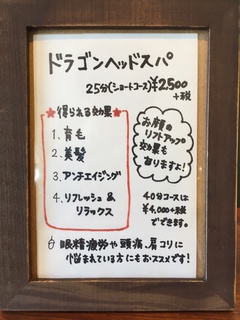 ドラゴンヘッドスパ
25分(ショートコース)¥2,500
+税
★得られる効果★
1. 育毛
2. 美髪
3. アンチエイジング
4. リフレッシュ &
リラックス
お顔の
リフトアップ
効果も
ありますよ!
40分コースは
¥4,000+税
でできます。
眼精疲労や頭痛、肩コリに
悩まれている方にもおススメです!